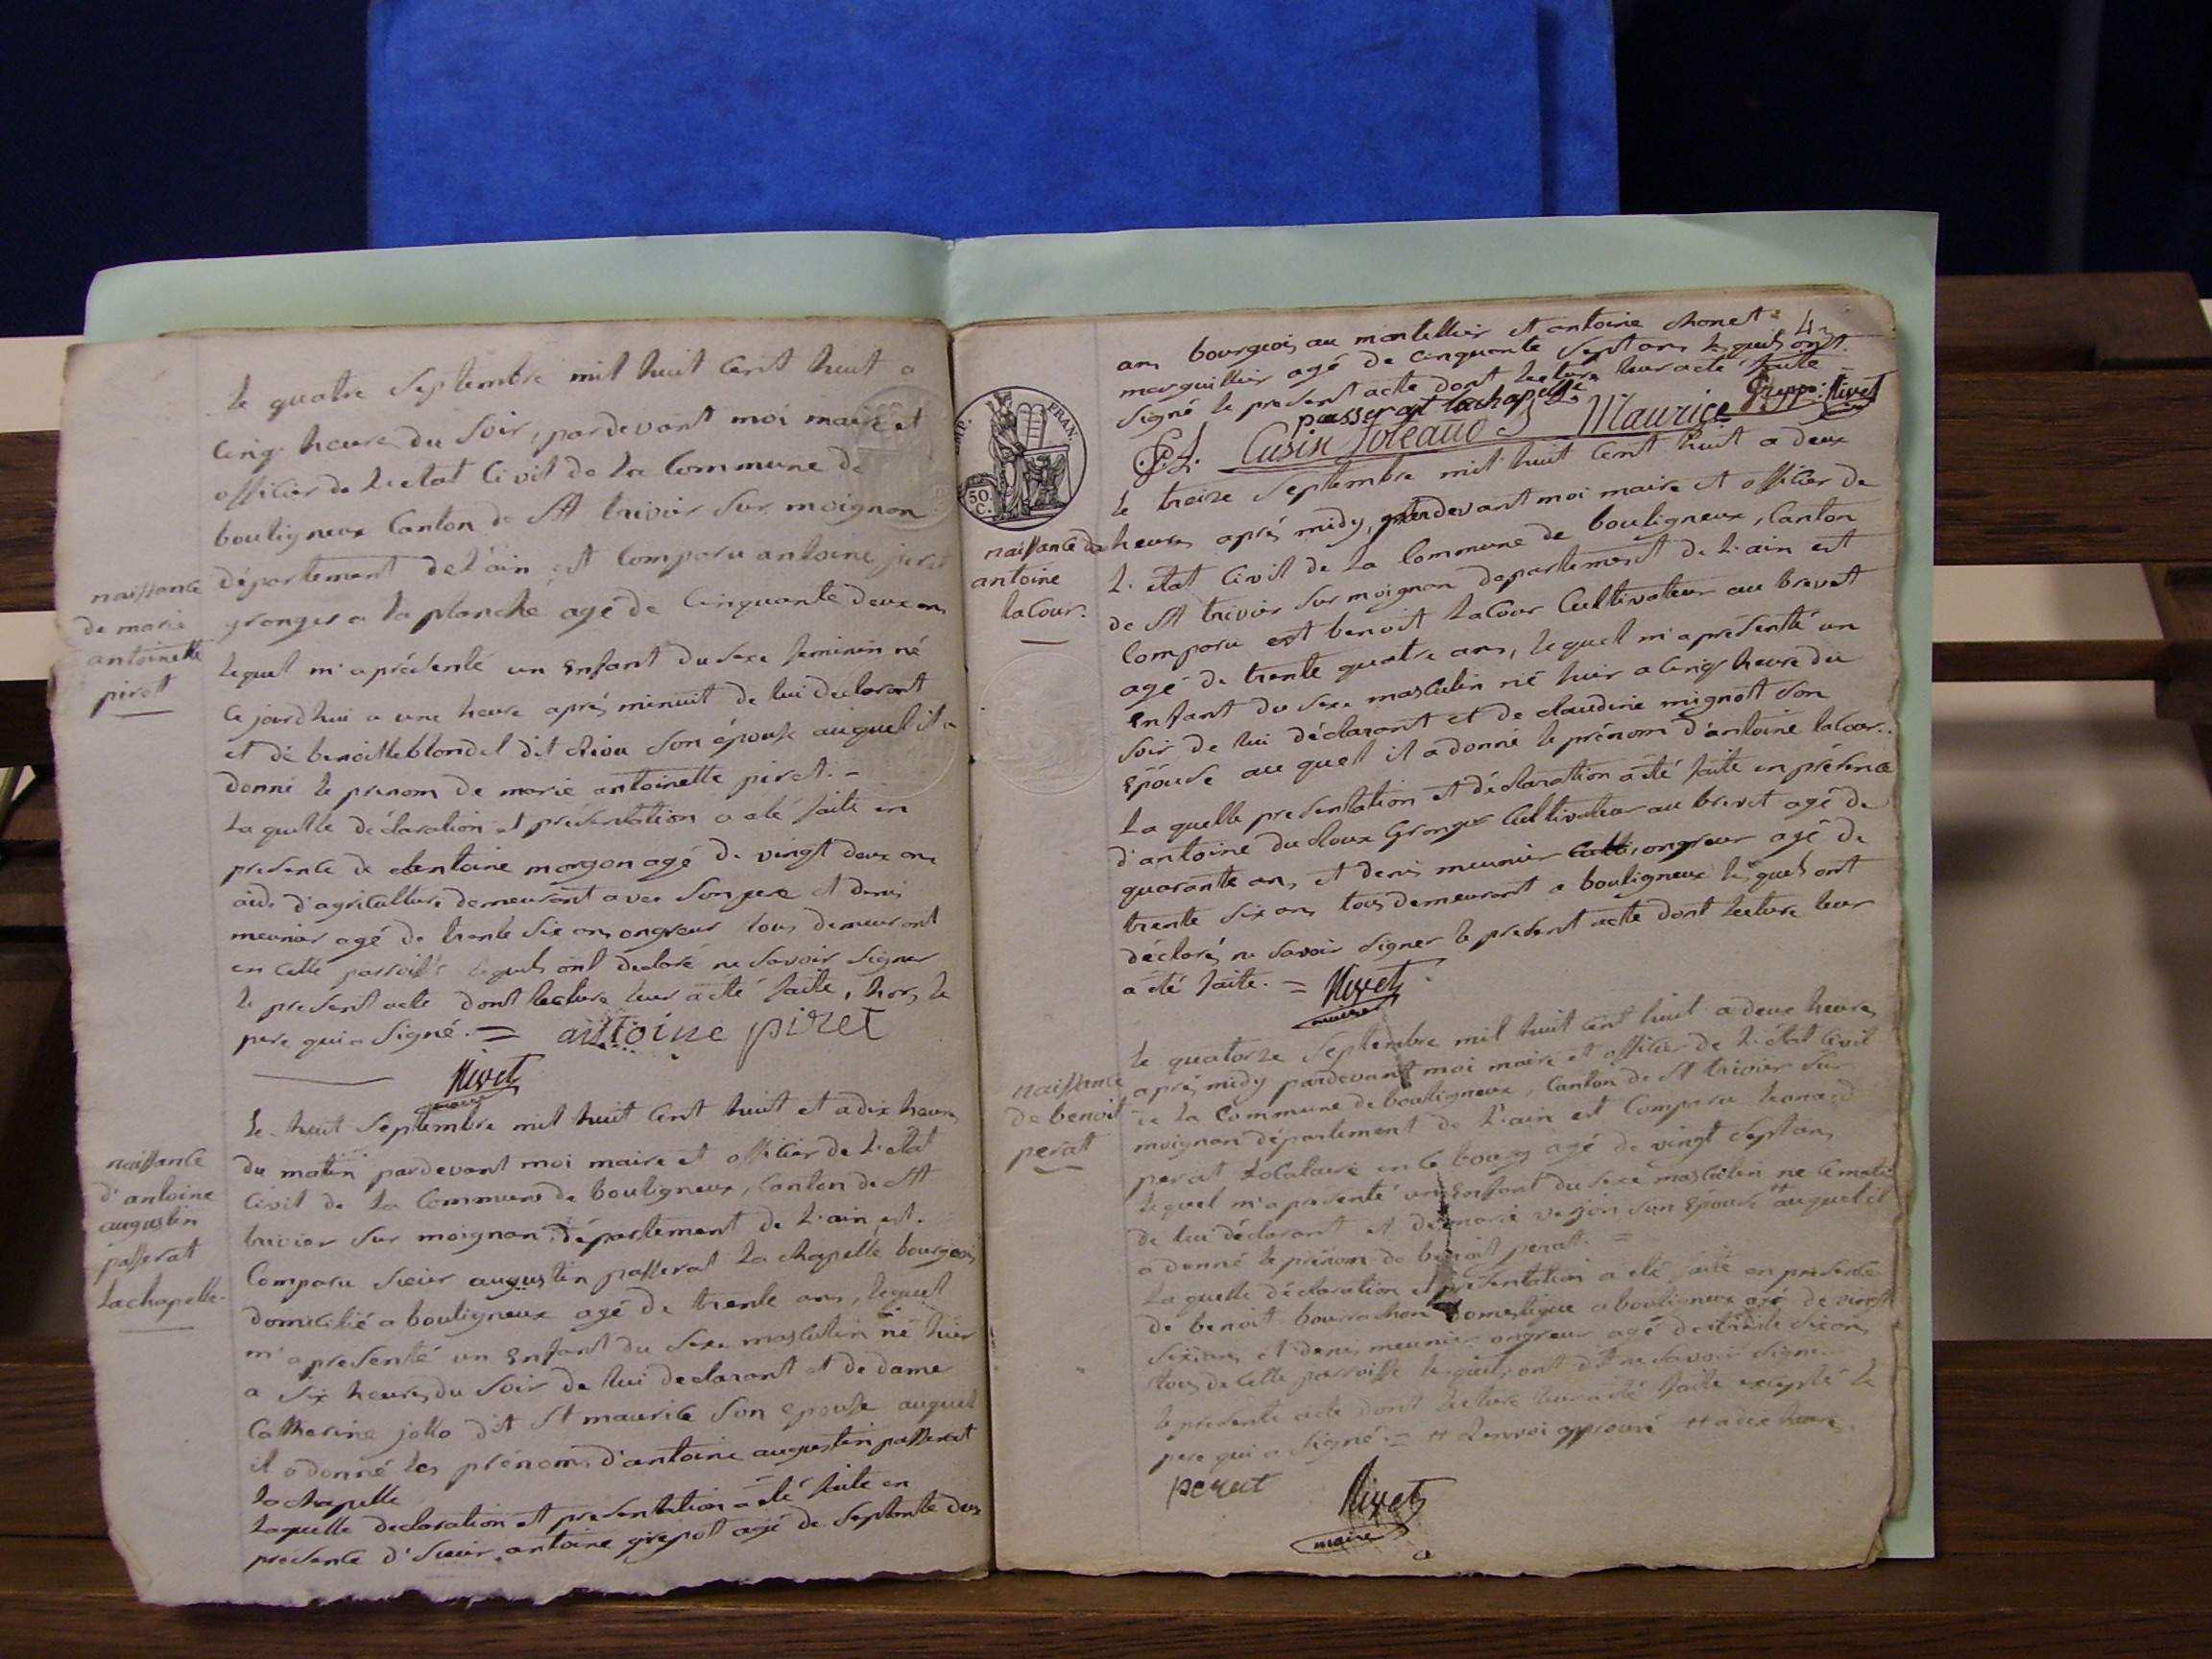 le quatre Septembre mil huit Cent huit a
Cinq heures du Soir, pardevant moi maire et
officier de L'etat Civil de La Commune de
bouligneux Canton de St trivier Sur moignon
naissance
de marie
antoinette
piret
département de L'ain est Comparu antoine piret
granger a la planche agé de Cinquante deux ans
lequel m'a présenté un Enfant du Sexe feminin né
Ce jourdhui a une heure aprés minuit de lui declarant
et de benoitte blondel dit Son épouse auquel il a
donné le prenom de marie antoinette piret. =
La quelle déclaration et présentation a été faite en
presence de antoine morgon agé de vingt deux ans
aide d'agriculture demeurant avec Son pere et denis
meunier agé de trente Six ans ongreur tous demeurant
en cette paroisse lequels ont declaré ne Savoir Signer
le present acte dont lecture leur a été faite, hors le
pere qui a Signé. = antoine piret
Nivet
maire
naissance
d'antoine
augustin
passerat
Lachapelle.
Le huit Septembre mil huit Cent huit et a dix heures
du matin pardevant moi maire et officier de L'etat
Civil de La Commune de bouligneux, Canton de St
trivier Sur moignon, département de L'ain est
Comparu Sieur augustin passerat La chapelle bourgeois
domicilié a bouligneux agé de trente ans, lequel
m'a présenté un Enfant du Sexe masculin né hier
a Six heures du Soir de lui declarant et de dame
Catherine dit St maurice Son epouse auquel
il a donné les prénoms d'antoine augustin passerat
Lachapelle
Laquelle declaration et presentation a été faite en
présence d'Sieur antoine agé de Septante deux
ans bourgeois au montellier et antoine chonet
marguillier agé de Cinquante Sept ans lequels ont
Signé le present acte dont lecture leur a été faite
passerat Lachapelle Greppo. Nivet
Cusin Joleaud St Maurice
IMP. FRAN.
50. C.
naissance de
antoine
laCour.
le treize Septembre mil huit Cent huit a deux
heures aprés midy, pardevant moi maire et officier de
L'etat Civil de La Commune de bouligneux, Canton
de St trivier Sur moignon departement de L'ain est
Comparu est benoit LaCour Cultivateur au brevet
agé de trente quatre ans, lequel m'a présenté un
Enfant du Sexe masculin né hier a Cinq heure du
Soir de lui déclarant et de claudine mignot Son
Epouse au quel il a donné le prénom d'antoine laCour.
La quelle presentation et déclaration a été faite en présence
d'antoine ducloux Granger Cultivateur au brevet agé de
quarante ans, et denis meunier ongreur agé de
trente Six ans tous demeurant a bouligneux lequels ont
déclarés ne Savoir Signer le present acte dont lecture leur
a été faite. = Nivet
maire
naissance
de benoit
perat
Le quatorze Septembre mil huit Cent huit a deux heures
aprés midy pardevant moi maire et officier de L'état Civil
de La Commune de bouligneux, Canton de St trivier Sur
moignon département de L'ain est Comparu leonard
perat, Locataire en Ce bourg agé de vingt Sept ans
lequel m'a présenté un Enfant du Sexe masculin ne Ce matin
de lui déclarant et de marie verjon Son Epouse auquel il
a donné le prénom de benoit perat. =
La quelle déclaration et présentation a été faite en présence
de benoit bourrachon domestique a bouligneux agé de vingt
Six ans et denis meunier ongreur agé de trente Six ans
tous de Cette paroisse lequels ont dit ne Savoir Signer
le presente acte dont lecture leur a été faite excepté le
pere qui a Signé. = # Renvoi approuvé # a dix heures
perat Nivet
maire